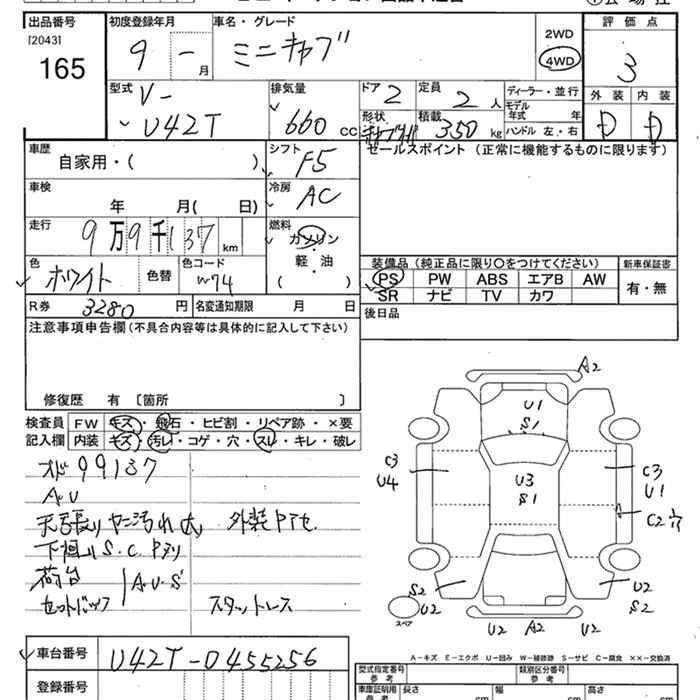 出品番号 初度登録年月 車名・グレード 評価点
[2043]
165 9 - 月 ミニキャブ 2WD 4WD 3
型式 V- U42T
排気量 660 cc
ドア 2 定員 2 人
形状 積載 350 kg
ディーラー・並行
モデル年式 年
ハンドル 左・右
外装 内装
D D
車歴 自家用・( )
シフト F5
セールスポイント (正常に機能するものに限ります)
車検 年 月( 日)
冷房 AC
走行 9万9千137 km
燃料 ガソリン
軽・油
( )
色 ホワイト 色替 色コード W74
装備品 (純正品に限り○をつけてください) 新車保証書
PS PW ABS エアB AW 有・無
SR ナビ TV カワ
R券 3280 円 名変通知期限 月 日
後日品
注意事項申告欄 (不具合内容等は具体的に記入して下さい)
修復歴 有 [箇所 ]
検査員記入欄
FW キズ・飛石・ヒビ割・リペア跡・×要
内装 キズ・汚レ・コゲ・穴・スレ・キレ・破レ
99137
A U
天張りヤニ汚れ大 外装
下廻りS.C
荷台 A.U.S
セットバック スタットレス
A2
U1
S1
C3
U4
U3
S1
C3
U1
C2
S2
U2
U2
S2
スペア
U2 A2 U2
車台番号 U42T-0455256
登録番号
A-キズ E-エクボ U-凹み W-補修跡 S-サビ C-腐食 ××-交換済
型式指定番号 参考
類別区分番号 参考
車庫証明用 参考 長さ cm 幅 cm 高さ cm